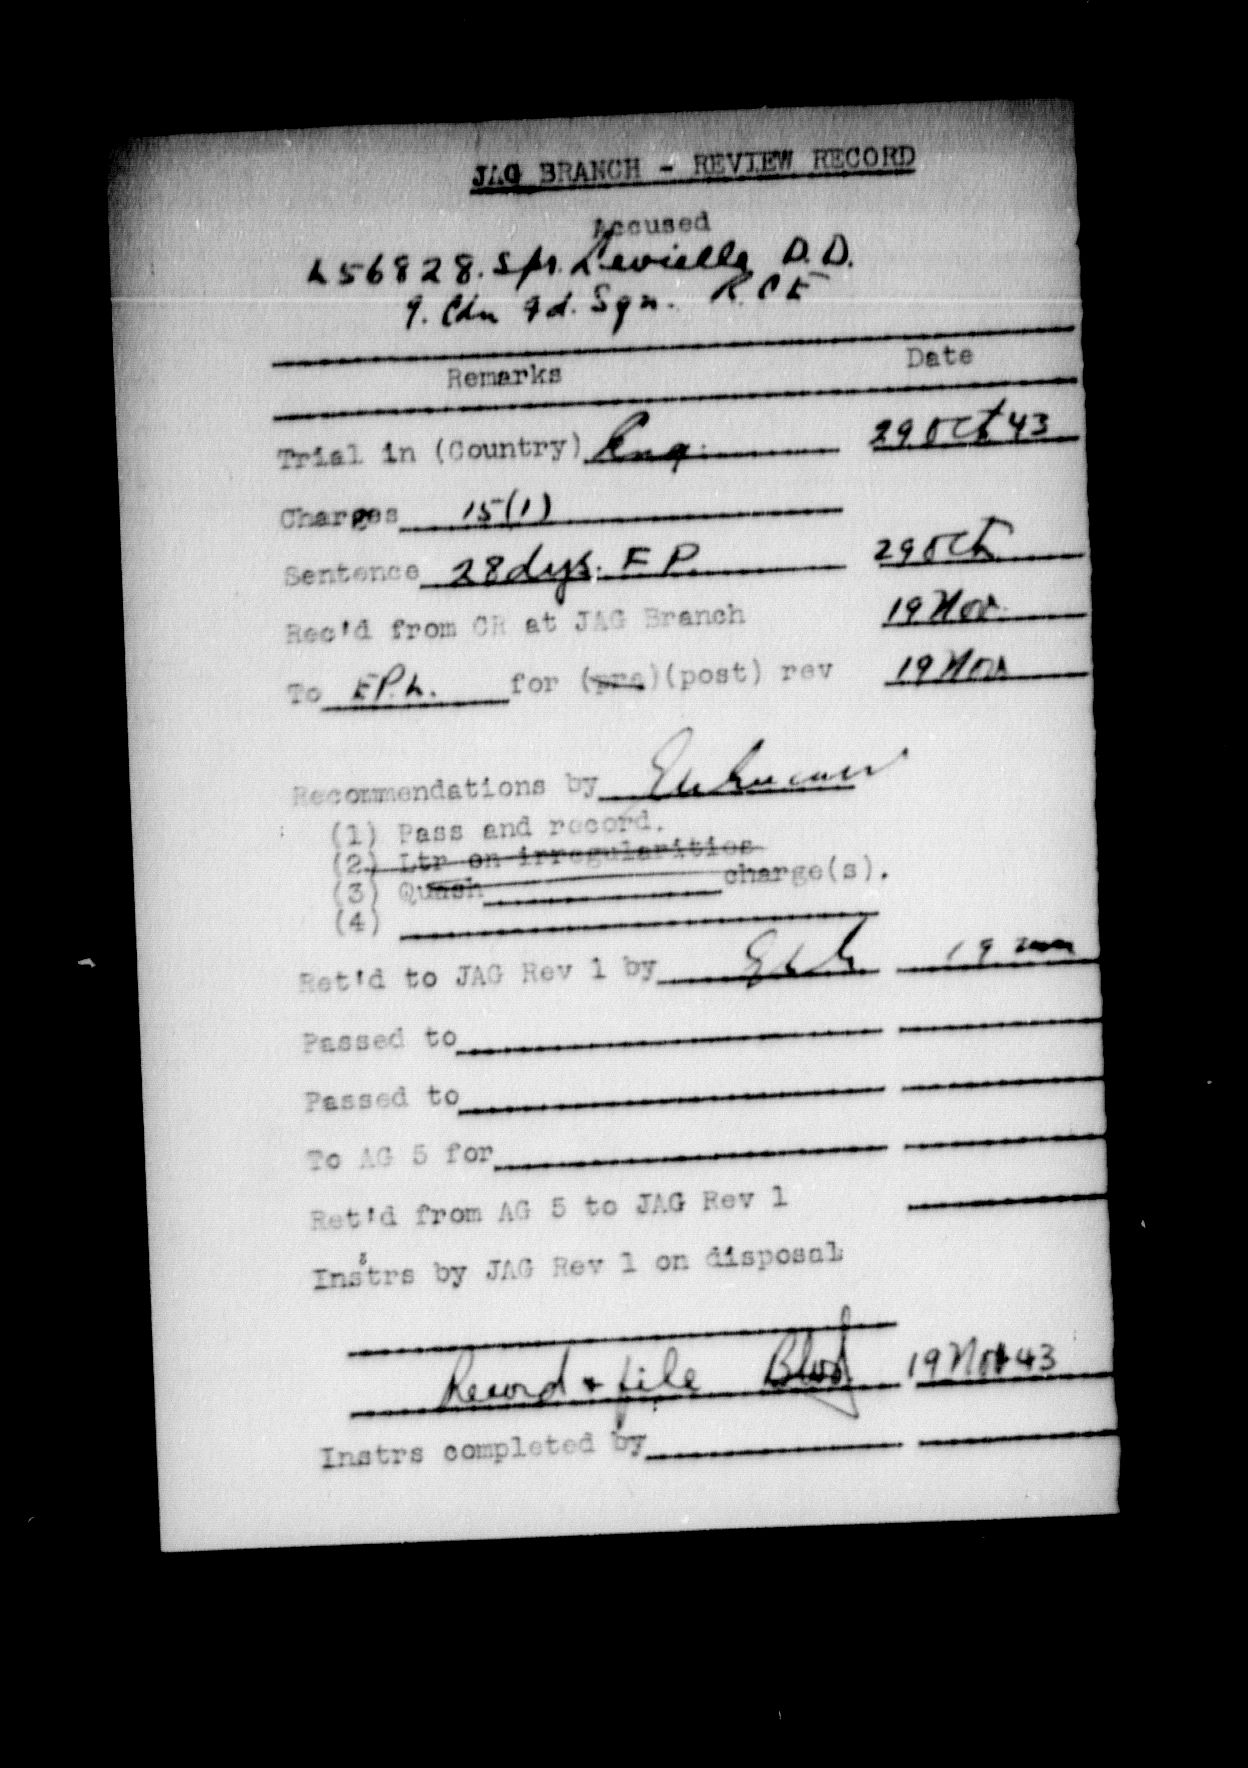 JAG BRANCH - REVIEW RECORD
Accused
L56828. Spr. Levielle D.D.
9. Cdn Fd. Sqn. R.C.E
Remarks Date
Trial in (Country) Eng. 29 Oct 43
Charges 15(1)
Sentence 28 dys. F.P. 29 Oct
Rec'd from CR at JAG Branch 19 Nov.
To E.P.L. for (pre)(post) rev 19 Nov
Recommendations by
(1) Pass and record.
(2) Ltr on irregularities
(3) Quash charge(s).
(4)
Ret'd to JAG Rev 1 by 19
Passed to
Passed to
To AG 5 for
Ret'd from AG 5 to JAG Rev 1
Instrs by JAG Rev 1 on disposal
Record + file 19 Nov 43
Instrs completed by